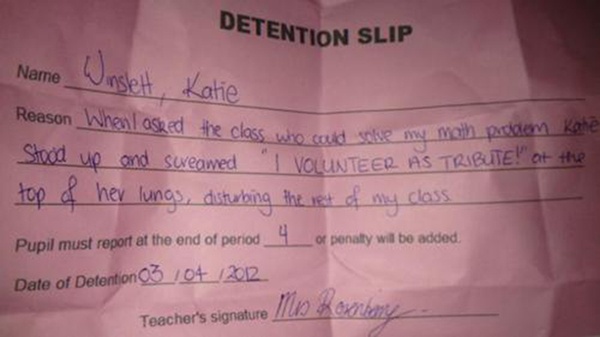 DETENTION SLIP
Name Winslett, Katie
Reason When I asked the class who could solve my math problem Katie
Stood up and screamed "I VOLUNTEER AS TRIBUTE!" at the
top of her lungs, disturbing the rest of my class
Pupil must report at the end of period 4 or penalty will be added.
Date of Detention 03 / 04 / 2012
Teacher's signature Mrs Rosenberg